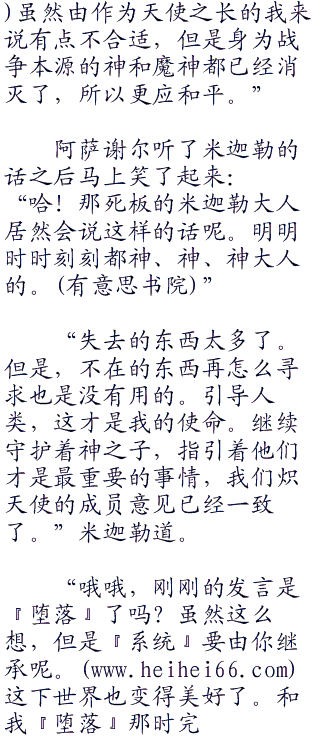 )虽然由作为天使之长的我来
说有点不合适，但是身为战
争本源的神和魔神都已经消
灭了，所以更应和平。”
阿萨谢尔听了米迦勒的
话之后马上笑了起来：
“哈！那死板的米迦勒大人
居然会说这样的话呢。明明
时时刻刻都神、神、神大人
的。(有意思书院)”
“失去的东西太多了。
但是，不在的东西再怎么寻
求也是没有用的。引导人
类，这才是我的使命。继续
守护着神之子，指引着他们
才是最重要的事情，我们炽
天使的成员意见已经一致
了。”米迦勒道。
“哦哦，刚刚的发言是
『堕落』了吗？虽然这么
想，但是『系统』要由你继
承呢。(www.heihei66.com)
这下世界也变得美好了。和
我『堕落』那时完